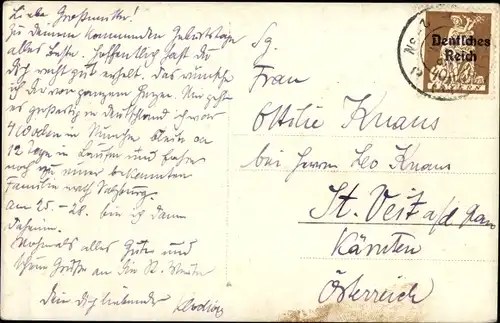 Liebe Großmutter!
Zu deinem kommenden Geburtstage
alles Beste. Hoffentlich hast du
dich recht gut erholt. Das wünsche
ich dir von ganzem Herzen. Mir geht
es großartig in Deutschland. Ich war
4 Wochen in München
12 Tage in Laufen und fahre
noch zu einer bekannten
Familie nach Salzburg.
am 25. - 28. bin ich dann
daheim.
Nochmals alles Gute und
schöne Grüße an
Dein dich liebender
Sg.
Frau
Ottilie Knaus
bei Herrn Leo Knaus
St. Veit a/d Glan
Kärnten
Österreich
Deutsches
Reich
BAYERN